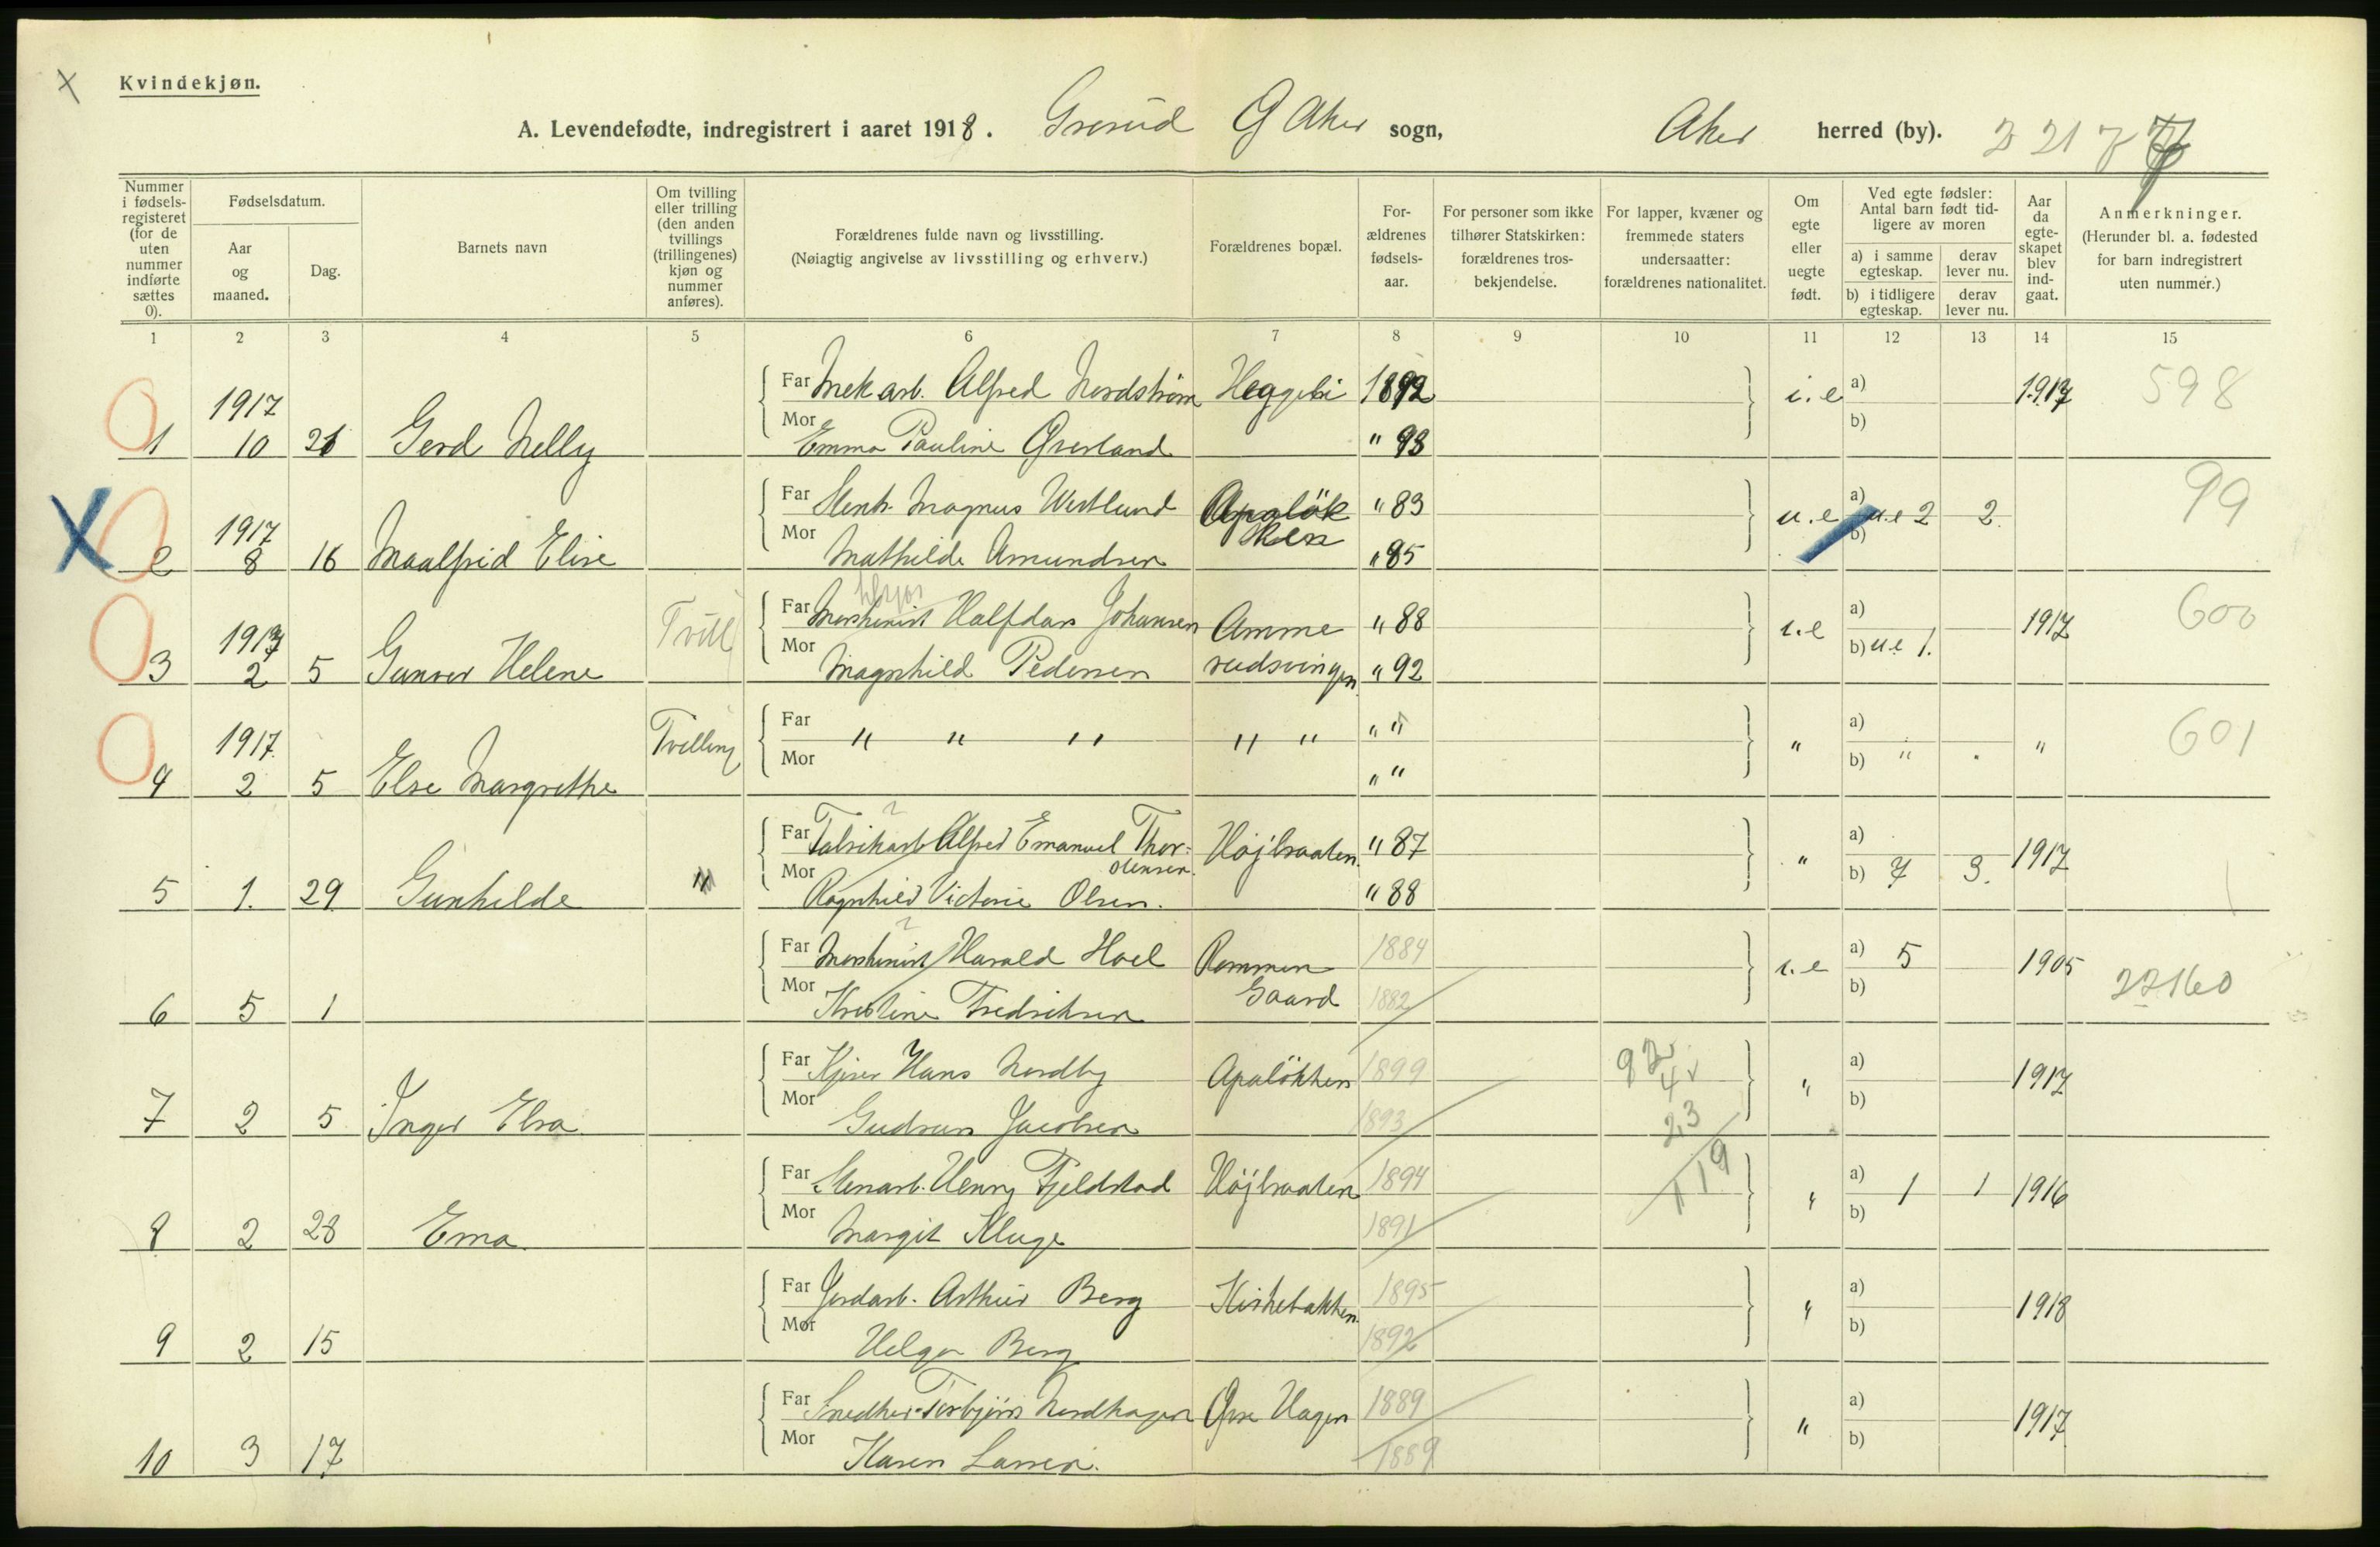 Kvindekjøn.
A. Levendefødte, indregistrert i aaret 1918. Grorud Ø Aker sogn, Aker herred (by).
Nummer i fødsels-registeret (for de uten nummer indførte sættes 0).
Fødselsdatum.
Aar og maaned.
Dag.
Barnets navn
Om tvilling eller trilling (den anden tvillings (trillingenes) kjøn og nummer anføres).
Forældrenes fulde navn og livsstilling.
(Nøiagtig angivelse av livsstilling og erhverv.)
Forældrenes bopæl.
For-ældrenes fødsels-aar.
For personer som ikke tilhører Statskirken: forældrenes tros-bekjendelse.
For lapper, kvæner og fremmede staters undersaatter: forældrenes nationalitet.
Om egte eller uegte født.
Ved egte fødsler: Antal barn født tid-ligere av moren
a) i samme egteskap. derav lever nu.
b) i tidligere egteskap. derav lever nu.
Aar da egte-skapet blev ind-gaat.
Anmerkninger.
(Herunder bl. a. fødested for barn indregistrert uten nummer.)
1 2 3 4 5 6 7 8 9 10 11 12 13 14 15
1917 Far Mek arb. Alfred Nordstrøm Heggeli 1892 i.e a) 1917 598
1 10 21 Gerd Nelly Mor Emma Pauline Øverland " 93 b)
1917 Far Magnus Westlund Apaløkken " 83 u.e a) u.e 2 2 99
2 8 16 Maalfrid Elise Mor Mathilde Amundsen " 85 b)
1917 Tvill Far Maskinist Halfdan Johansen Amme " 88 i.e a) 1917 600
3 2 5 Gunvor Helene Mor Magnhild Pedersen rudsvingen " 92 b) u.e 1.
1917 Tvilling Far " " " " " " " " a) " 601
4 2 5 Else Margrethe Mor " " b) " "
Far Fabrikarb Alfred Emanuel Thor- Højbraaten " 87 " a) 1917
5 1. 29 Gunhilde " Mor stensen. Ragnhild Victoria Olsen. " 88 b) 7 3.
Far Maskinist Harald Hoel Rommen 1884 i.e a) 5 1905 22160
6 5 1 Mor Kristine Fredriksen Gaard 1882 b)
Far Kjører Hans Nordby Apaløkken 1899 " a) 1917
7 2 5 Inger Elsa Mor Gudrun Jacobsen 1893 23 b)
Far Stenarb. Henry Fjeldstad Højbraaten 1894 119 " a) 1 1 1916
8 2 28 Erna Mor Margit Kluge 1891 b)
Far Jordarb. Arthur Berg Kirkebakken 1895 " a) 1918
9 2 15 Mor Helga Berg 1892 b)
Far Snedker Torbjørn Nordhagen Øvre Hagen 1889 " a) 1917
10 3 17 Mor Karen Larsen. 1889 b)